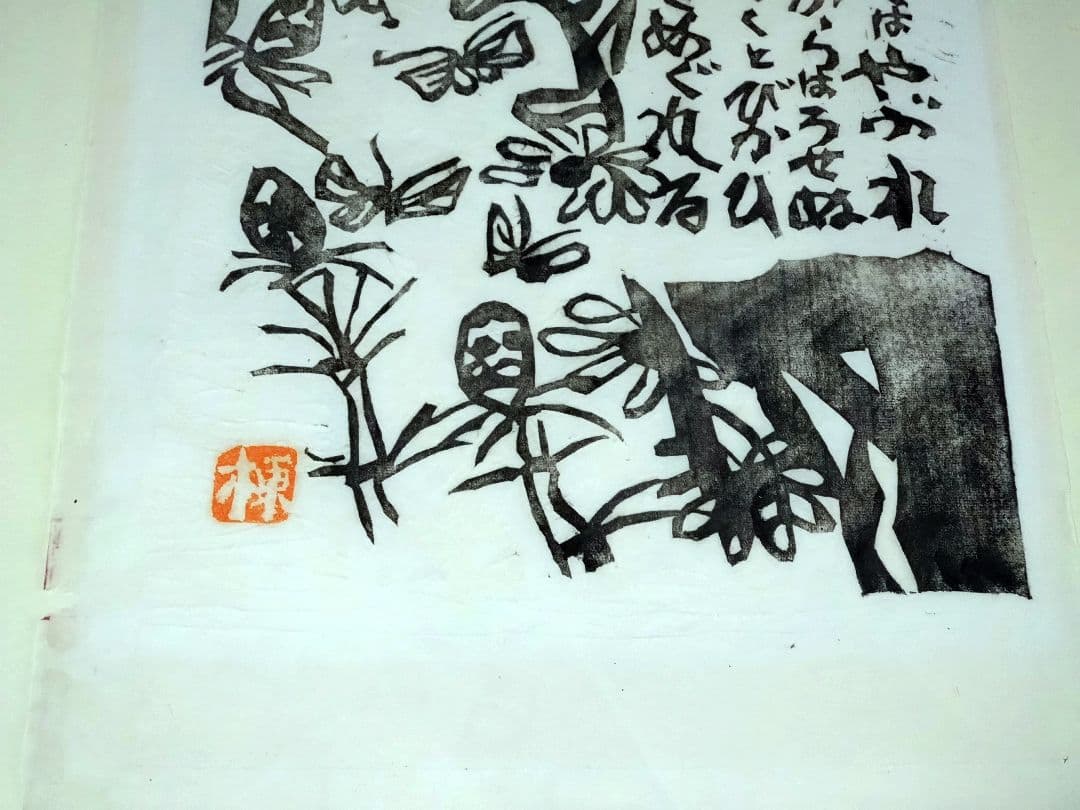 はやぶれ
からはうせぬ
くとびかひ
めぐれる
棟